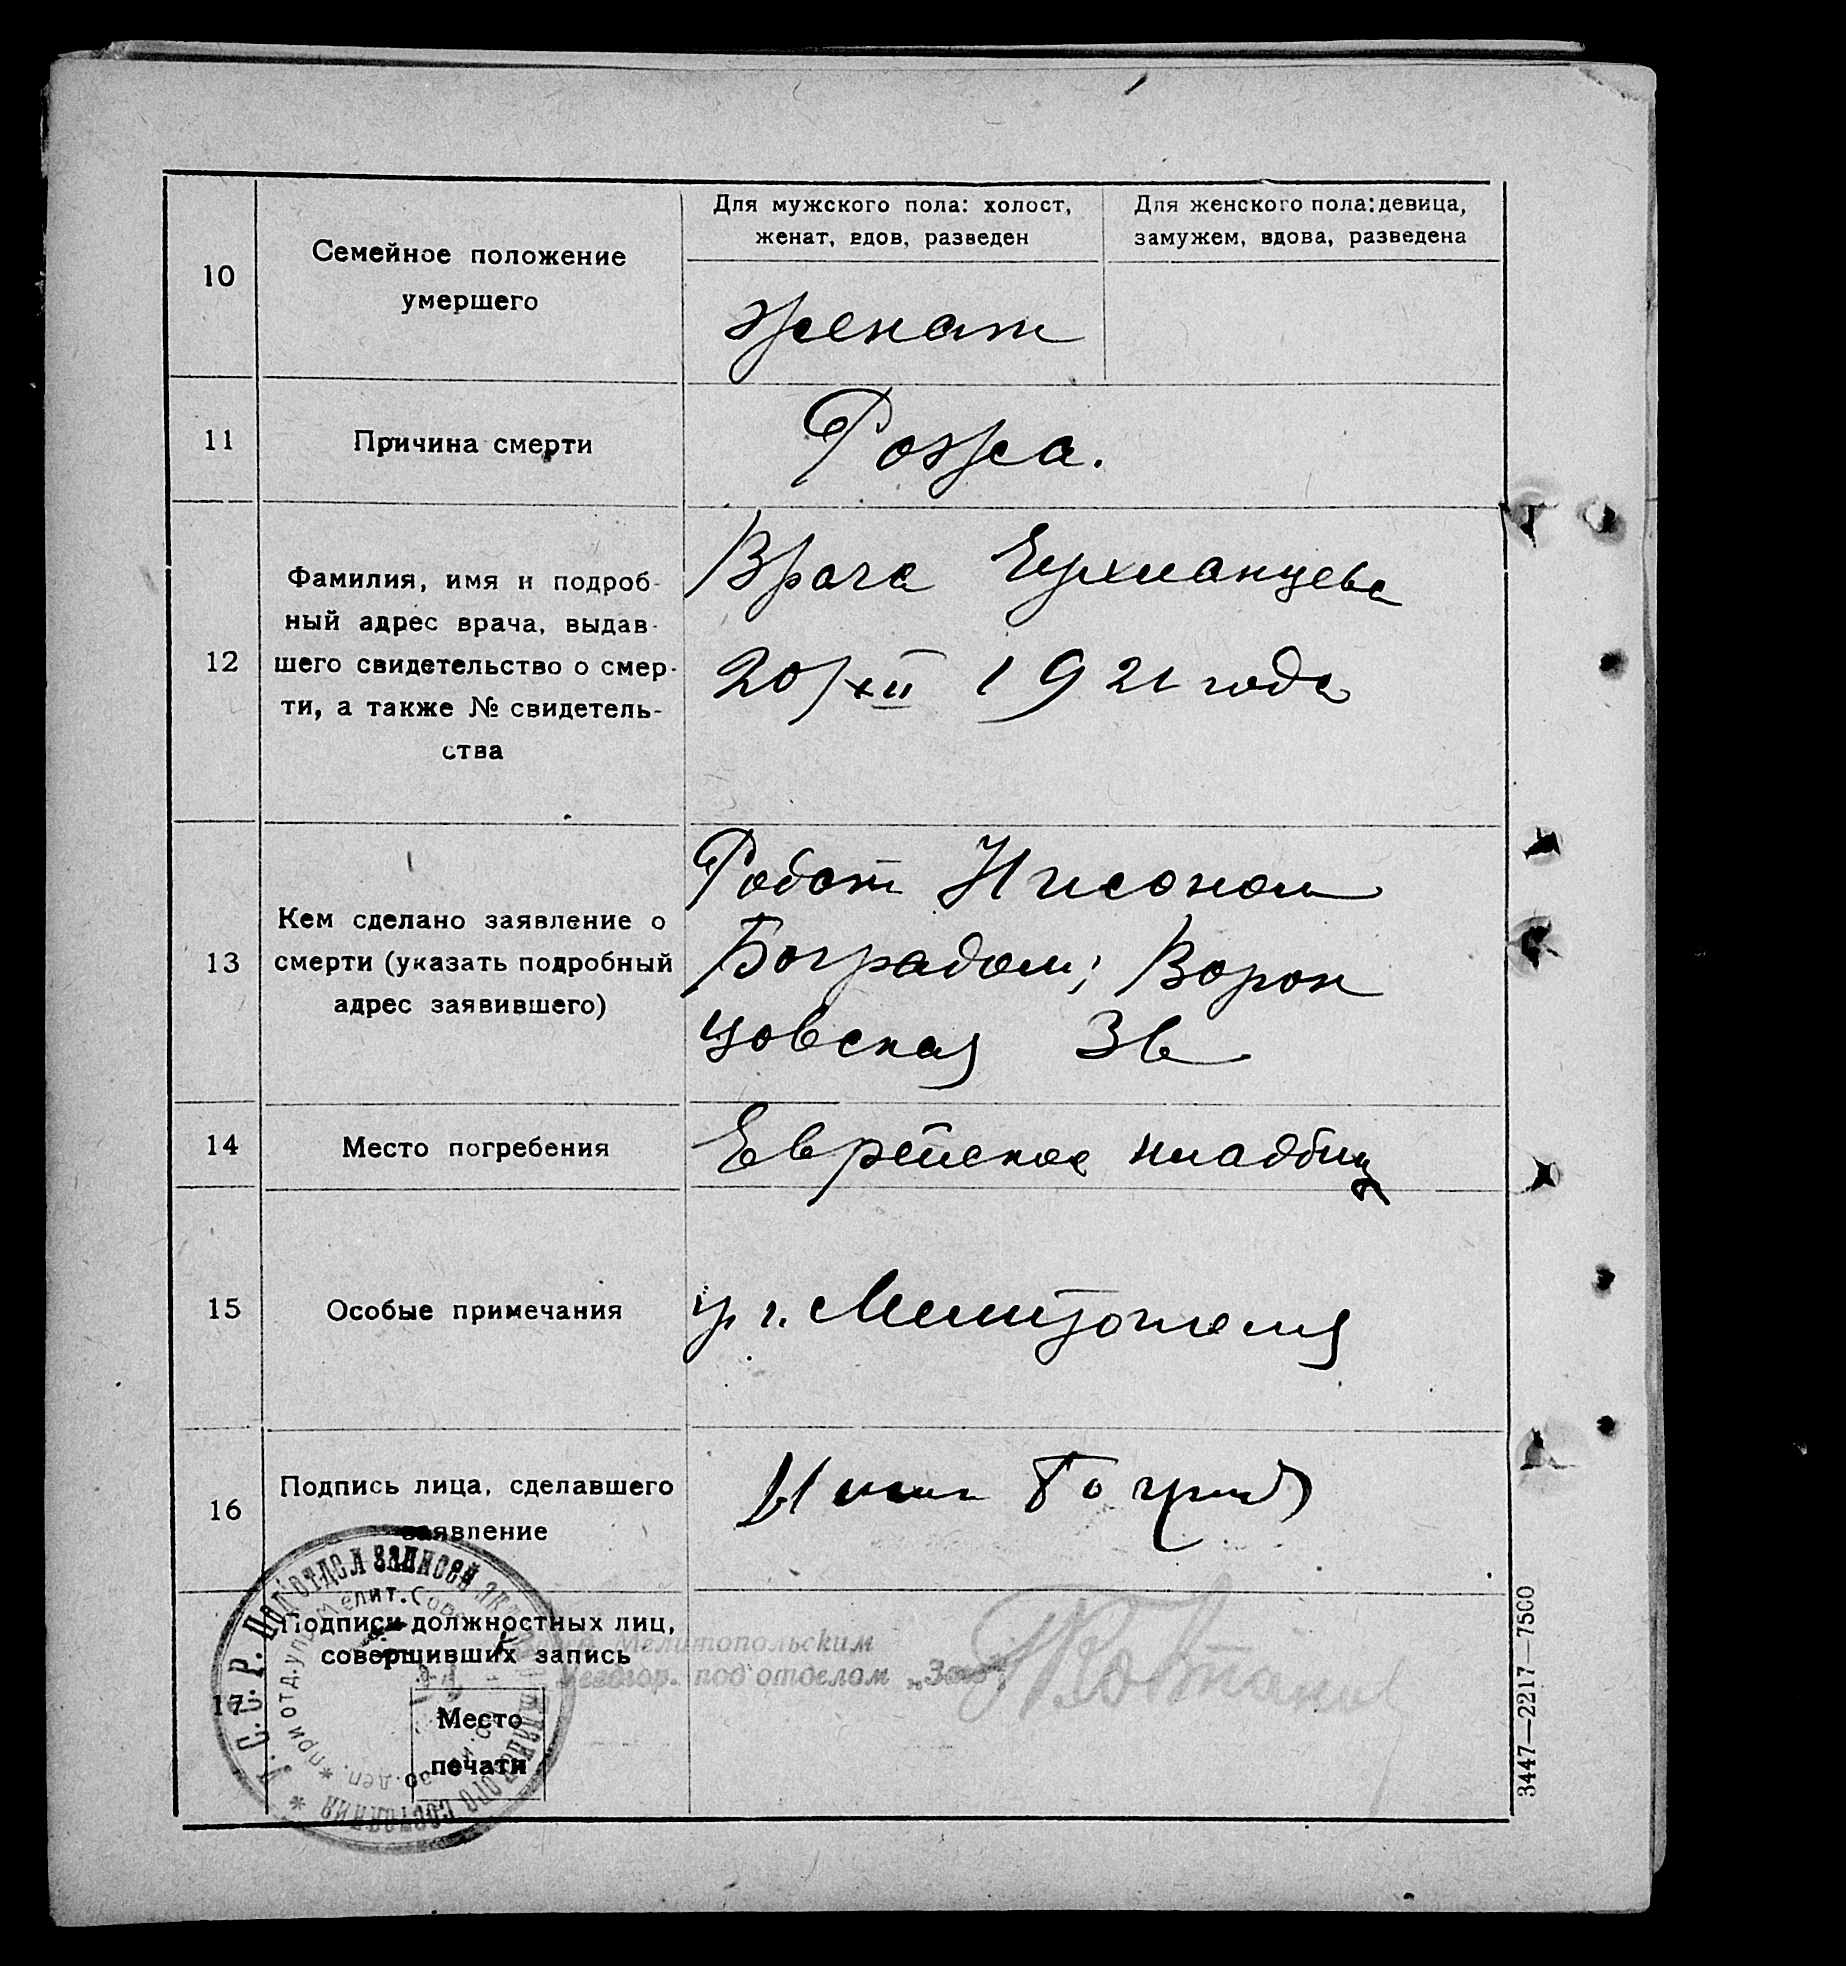 10
Семейное положение
умершего
Для мужского пола: холост,
женат, вдов, разведен
Для женского пола: девица,
замужем, вдова, разведена
женат
11
Причина смерти
Рожа.
12
Фамилия, имя и подроб-
ный адрес врача, выдав-
шего свидетельство о смер-
ти, а также № свидетель-
ства
Врача
20/XII 1921 года
13
Кем сделано заявление о
смерти (указать подробный
адрес заявившего)
Нисоном
Боградом; Ворон
цовская
14
Место погребения
Еврейское кладбищ
15
Особые примечания
г. Мелитополя
16
Подпись лица, сделавшего
заявление
17
Подписи должностных лиц,
совершивших запись
Мелитопольским
под'отделом
Место
печати
С.С.Р. Под'отдел записей
состояния
3447—2217—7500